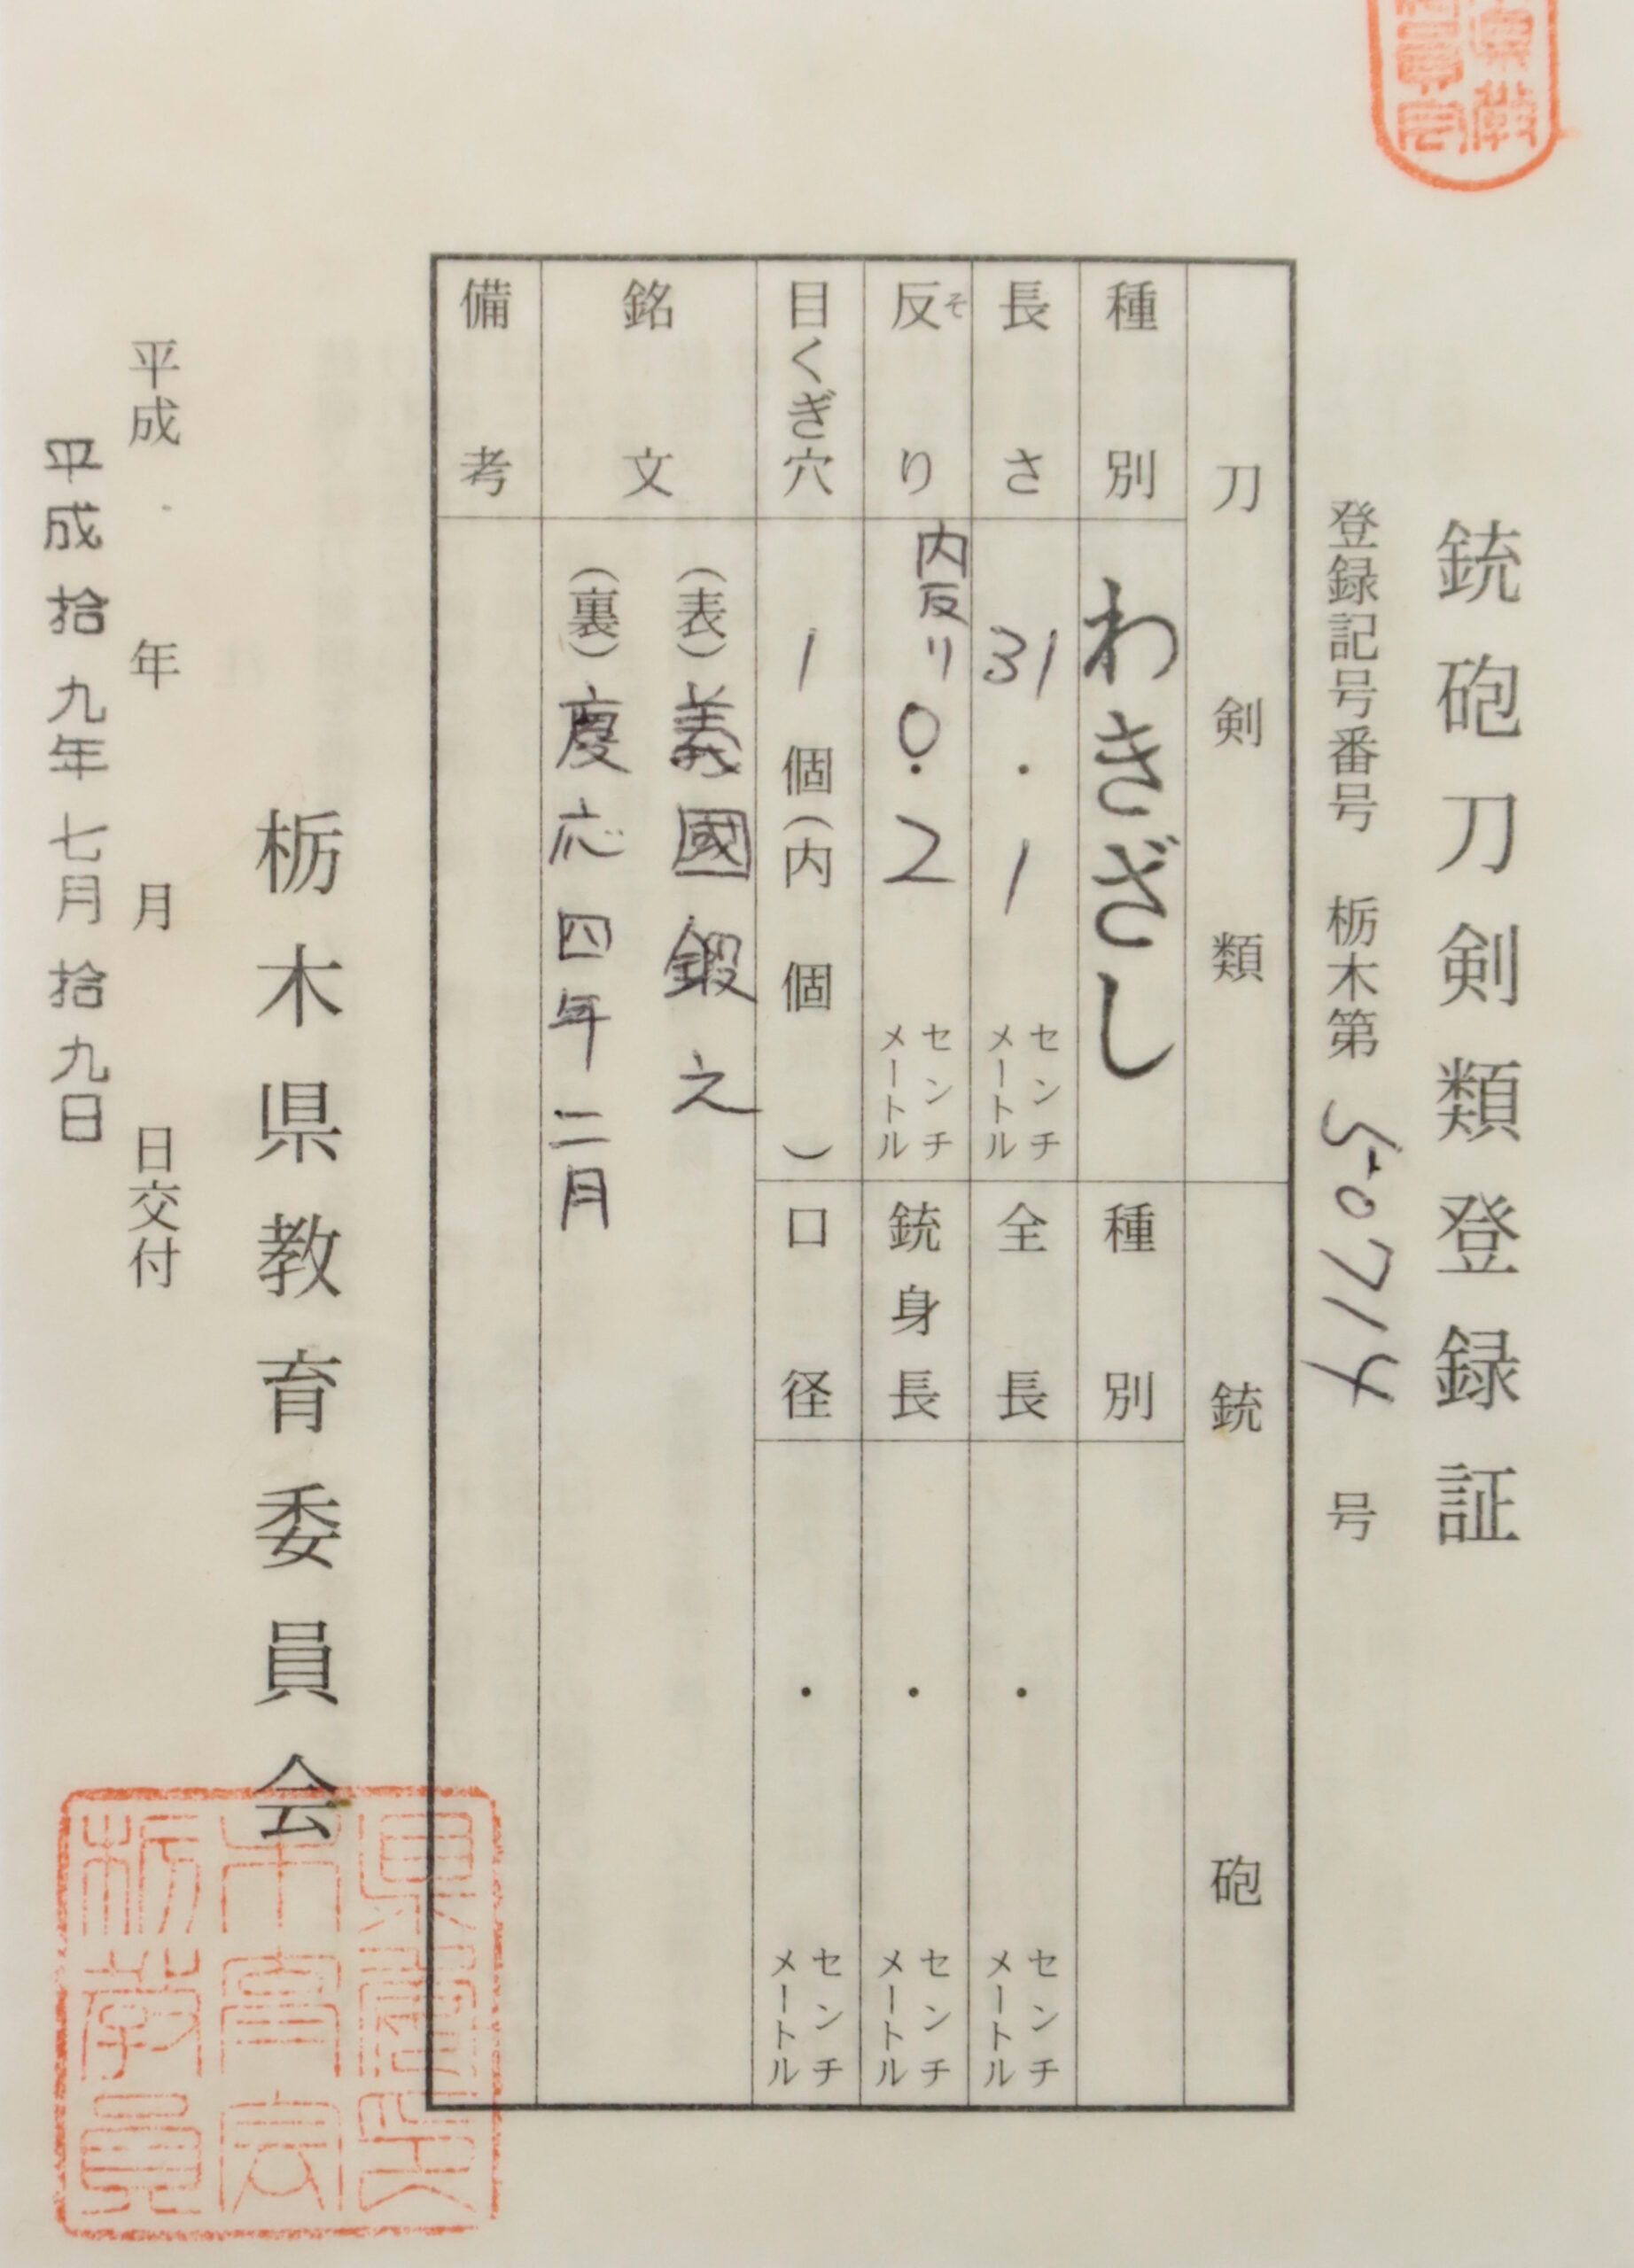 銃砲刀剣類登録証
登録記号番号 栃木第 50714 号
刀剣類
銃砲
種別 わきざし
種別
長さ 31.1 センチメートル
全長 . センチメートル
反り そ 内反リ 0.2 センチメートル
銃身長 . センチメートル
目くぎ穴 1個(内 個)
口径 . センチメートル
銘文
(表)義國鍛之
(裏)慶応四年二月
備考
栃木県教育委員会
平成 年 月 日交付
平成拾九年七月拾九日
栃木県教育委員会印